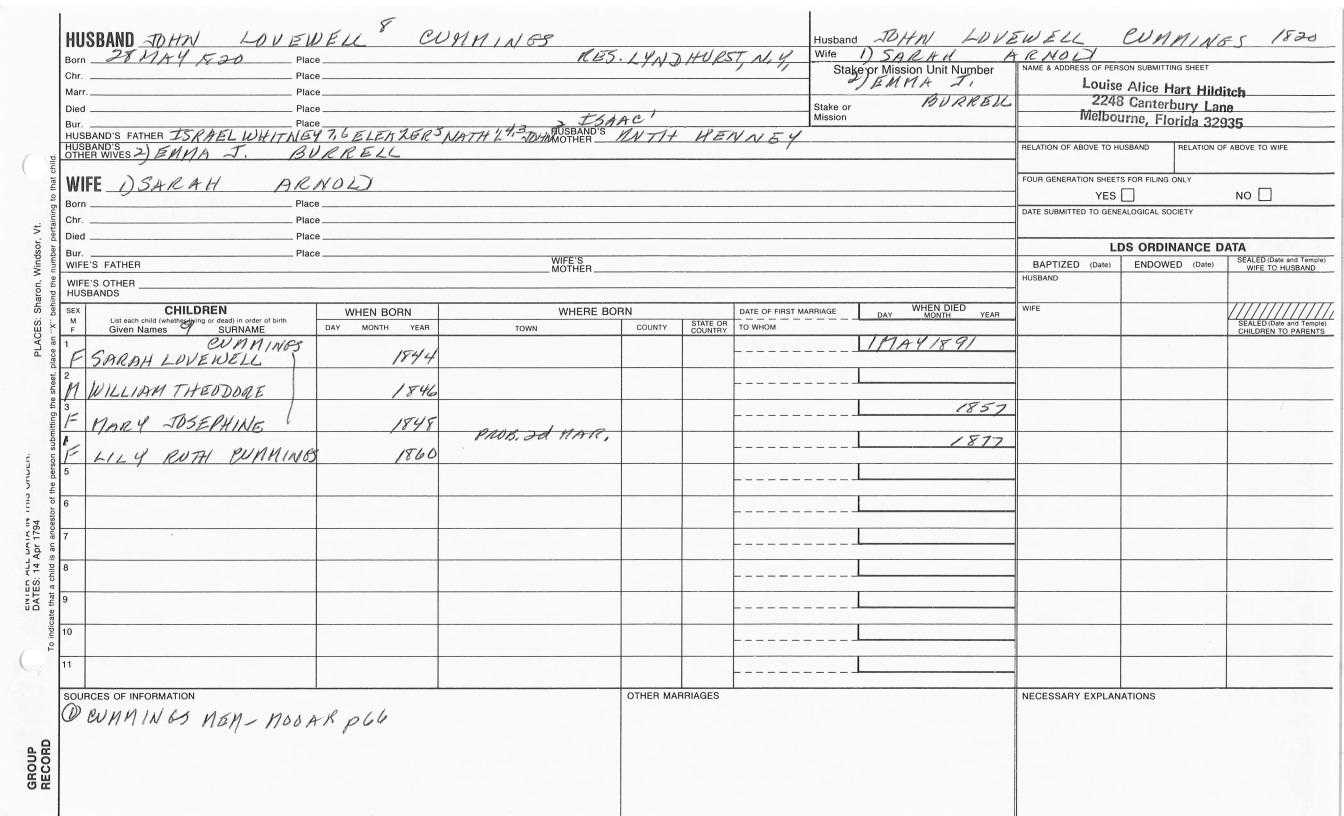 HUSBAND JOHN LOVEWELL 8 CUMMINGS
Born 28 MAY 1820 Place RES. LYNDHURST, N.Y.
Chr. Place
Marr. Place
Died Place
Bur. Place
HUSBAND'S FATHER ISRAEL WHITNEY 7,6 ELEAZER 5 NATH'L 4,3 JOHN 2 ISAAC 1 HUSBAND'S MOTHER RUTH KENNEY
HUSBAND'S OTHER WIVES 2) EMMA J. BURRELL
Husband JOHN LOVEWELL CUMMINGS 1820
Wife 1) SARAH ARNOLD
Stake or Mission Unit Number
2) EMMA J. BURRELL
Stake or Mission
NAME & ADDRESS OF PERSON SUBMITTING SHEET
Louise Alice Hart Hilditch
2248 Canterbury Lane
Melbourne, Florida 32935
RELATION OF ABOVE TO HUSBAND RELATION OF ABOVE TO WIFE
FOUR GENERATION SHEETS FOR FILING ONLY
YES NO
DATE SUBMITTED TO GENEALOGICAL SOCIETY
WIFE 1) SARAH ARNOLD
Born Place
Chr. Place
Died Place
Bur. Place
WIFE'S FATHER WIFE'S MOTHER
WIFE'S OTHER HUSBANDS
LDS ORDINANCE DATA
BAPTIZED (Date) ENDOWED (Date) SEALED (Date and Temple) WIFE TO HUSBAND
HUSBAND
WIFE
SEALED (Date and Temple) CHILDREN TO PARENTS
SEX M F
CHILDREN
List each child (whether living or dead) in order of birth
Given Names 9 SURNAME
WHEN BORN
DAY MONTH YEAR
WHERE BORN
TOWN COUNTY STATE OR COUNTRY
DATE OF FIRST MARRIAGE
TO WHOM
WHEN DIED
DAY MONTH YEAR
1 F SARAH LOVEWELL CUMMINGS 1844 1 MAY 1891
2 M WILLIAM THEODORE 1846
3 F MARY JOSEPHINE 1848 1857
PROB. 2d MAR.
4 F LILY RUTH CUMMINGS 1860 1877
5
6
7
8
9
10
11
SOURCES OF INFORMATION
① CUMMINGS MEM- MOOAR p66
OTHER MARRIAGES
NECESSARY EXPLANATIONS
PLACES: Sharon, Windsor, Vt.
DATES: 14 Apr 1794
To indicate that a child is an ancestor of the person submitting the sheet, place an "X" behind the number pertaining to that child.
GROUP RECORD